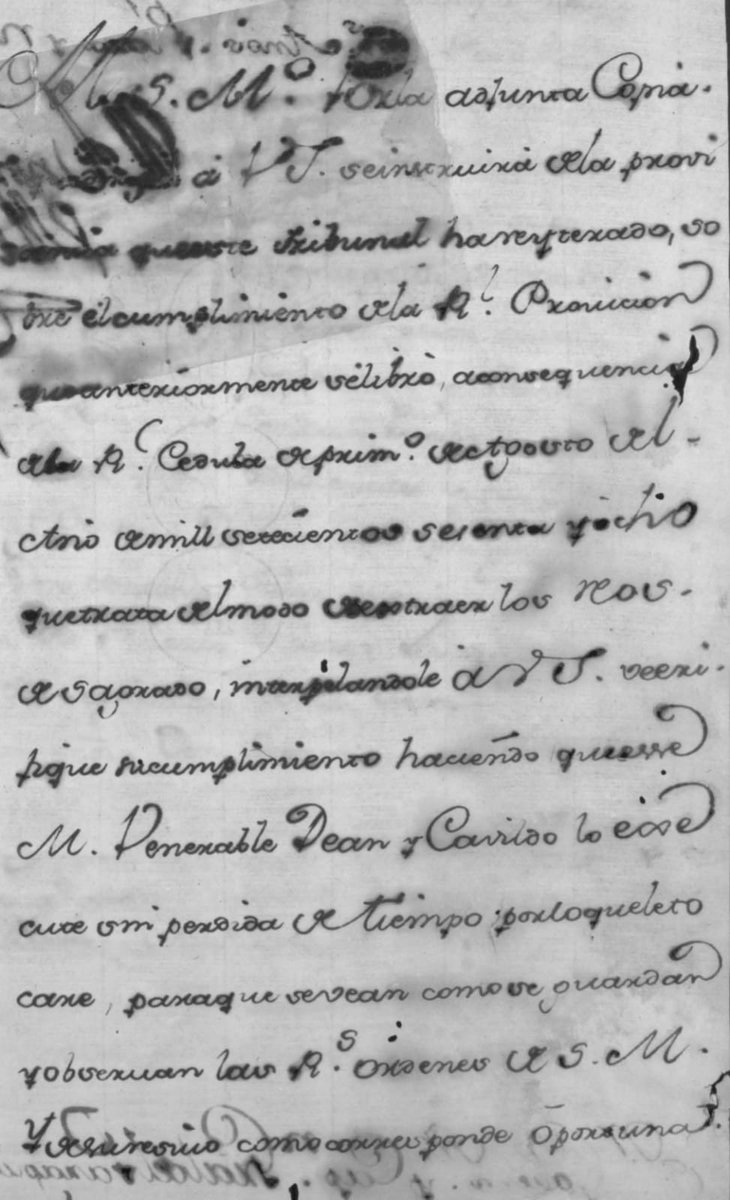 S. M.º Por la adjunta Copia.
á V S. se instruirá de la provi
que este Tribunal ha reyterado, so
bre el cumplimiento de la R.l Provicion
que anteriormente se libró, aconsequencia
de la R.l Cedula de prim.º de Agosto del
Año de mill setecientos sesenta y ócho
que trata del modo de extraer los reos
de sagrado, interpelandole á V S. veeri-
fique su cumplimiento haciendo que esse
M. Venerable Dean y Cavildo lo éxe
cute sin perdida de tiempo por lo que le to
care, para que se vean como se guardan
y obseruan las R.s órdenes de S. M.
Y como corresponde óportuna